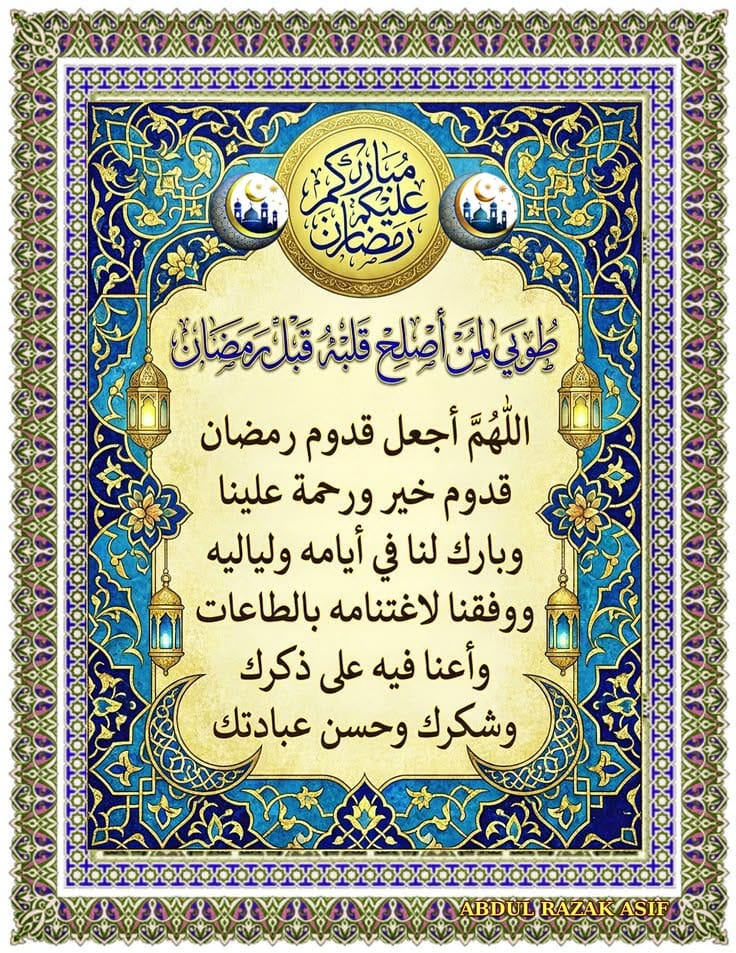 مُبَارَكٌ
عَلَيْكُمْ
رَمَضَان
طُوبَي لِمَنْ أَصْلِحَ قَلْبَهُ قَبْلَ رَمَضَانَ
اللَّهُمَّ أجعل قدوم رمضان
قدوم خير ورحمة علينا
وبارك لنا في أيامه ولياليه
ووفقنا لاغتنامه بالطاعات
وأعنا فيه على ذكرك
وشكرك وحسن عبادتك
ABDUL RAZAK ASIF